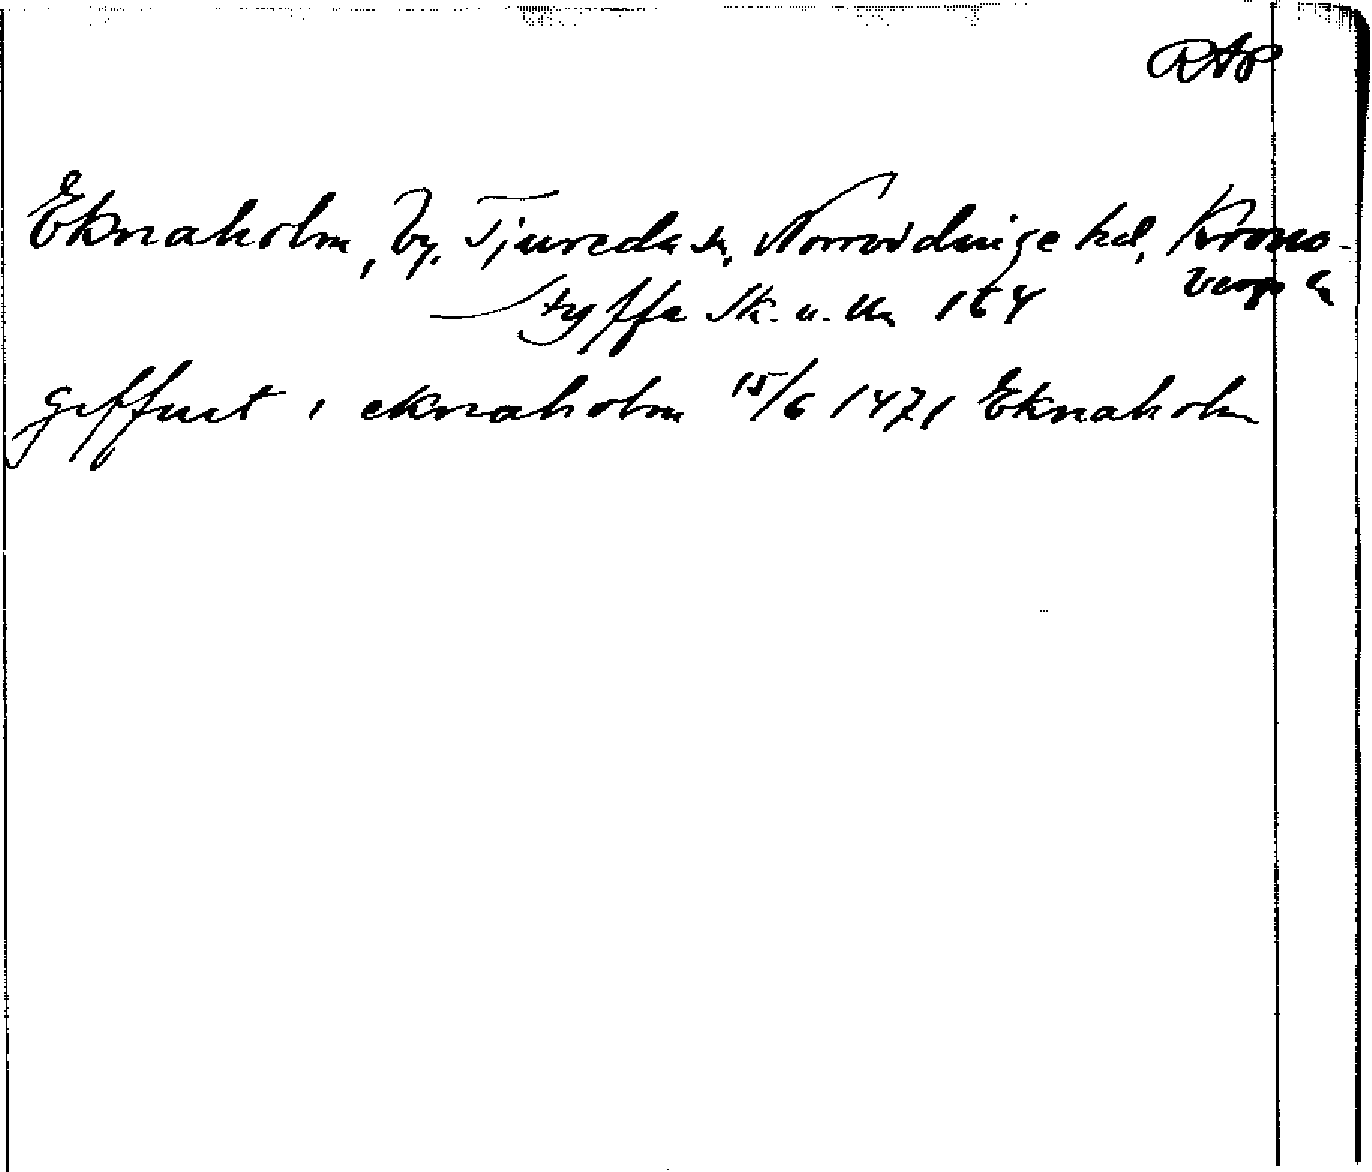 RAP
Eknaholm, by, Tjureda sn, Norrvidinge hd, Krono-
bergs l
Styffe Sk. u. Un 164
geffuit i eknaholm 15/6 1471 Eknaholm